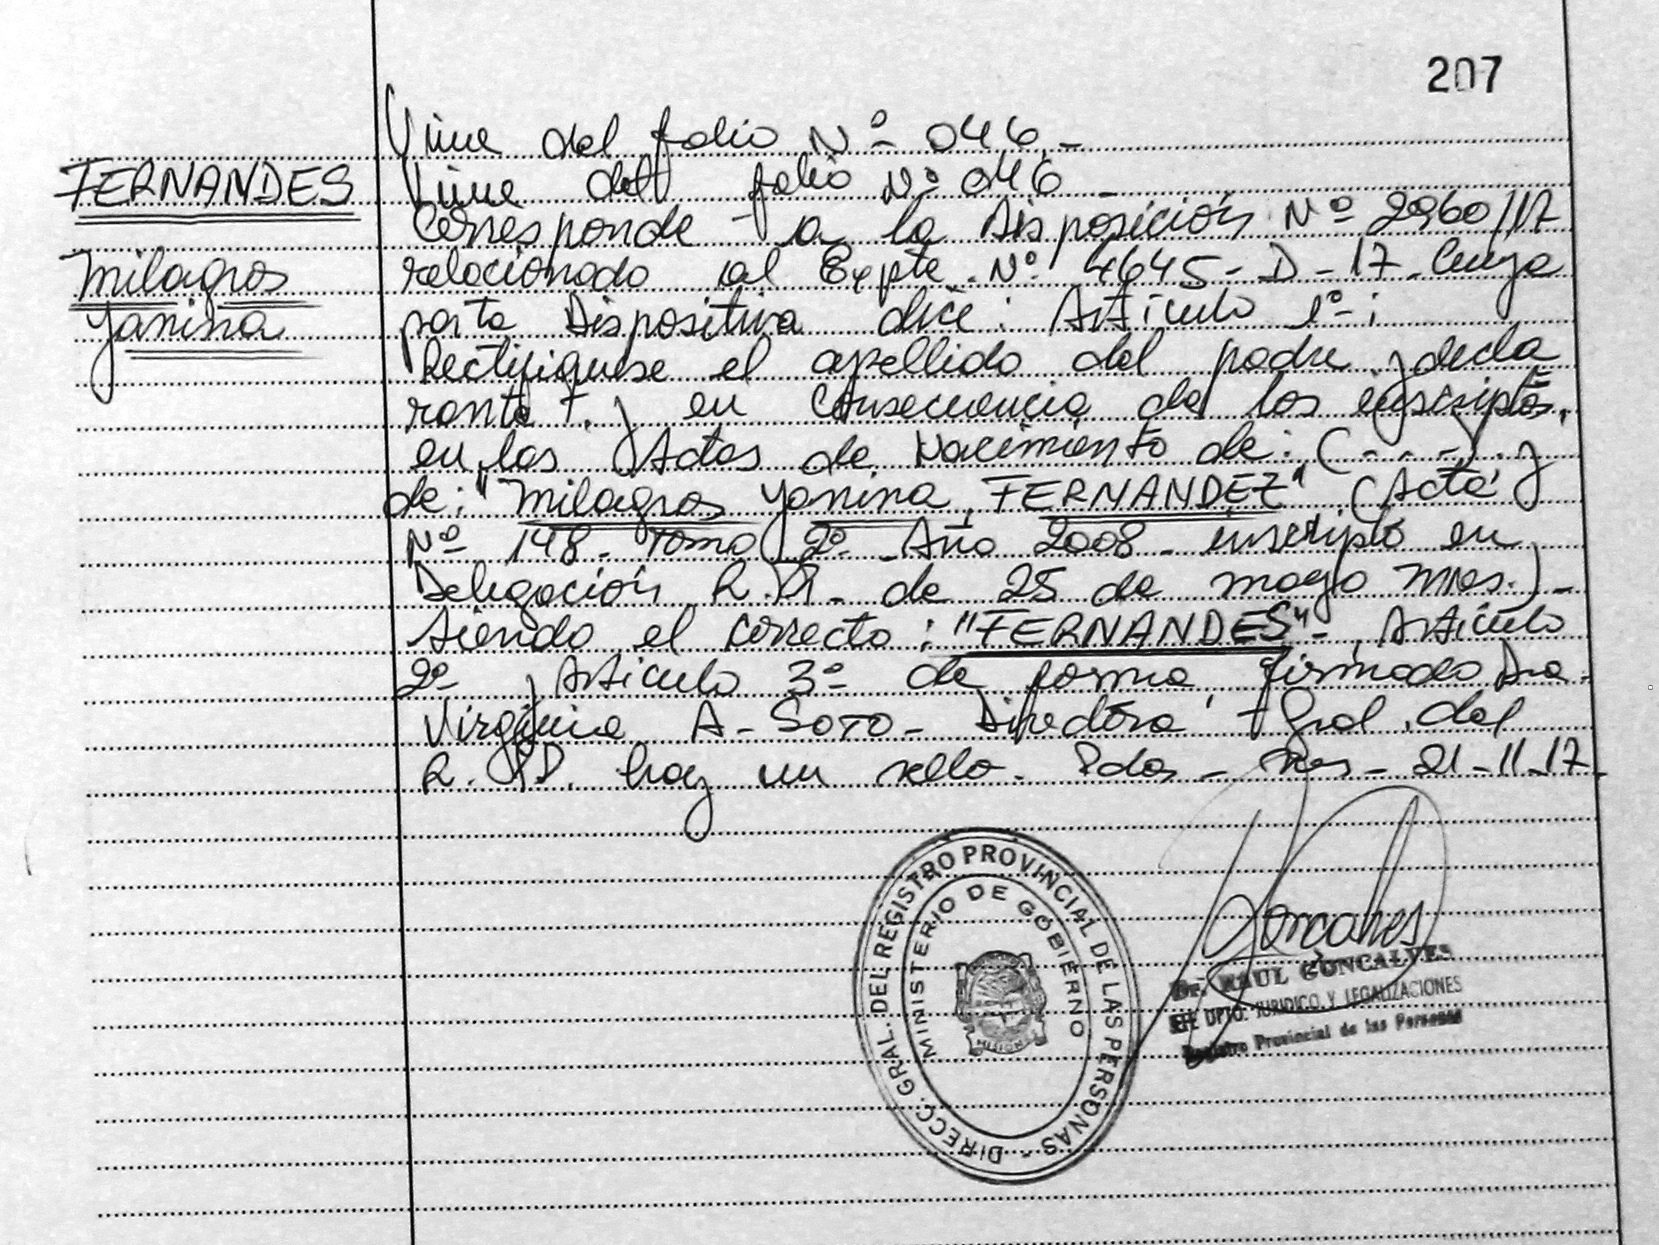 207
Viene del folio Nº 046.-
FERNANDES
Viene del folio Nº 046 -
Corresponde a la Disposición Nº 2960/17
Milagros
relacionado al Expte. Nº 4645-D-17. Cuya
Yanina
parte Dispositiva dice: Artículo 1º:
Rectifíquese el apellido del padre y decla
rante y en consecuencia de los inscriptos,
en las Actas de Nacimiento de: (- - -) y
de: "Milagros Yanina FERNANDEZ" (Acta
Nº 148- Tomo 2º- Año 2008- inscripto en
Delegación R.P. de 25 de mayo Mnes.)-
Siendo el correcto: "FERNANDES"- Artículo
2º y Artículo 3º de forma, firmado Dra.
Virginia A- SOTO- Directora Gral. del
R.P. hay un sello. Pdas- Mnes- 21-11-17.
DIRECC. GRAL. DEL REGISTRO PROVINCIAL DE LAS PERSONAS -
MINISTERIO DE GOBIERNO
MISIONES
Goncalves
Dr. RAUL GONCALVES
JEFE DPTO. JURIDICO Y LEGALIZACIONES
Registro Provincial de las Personas